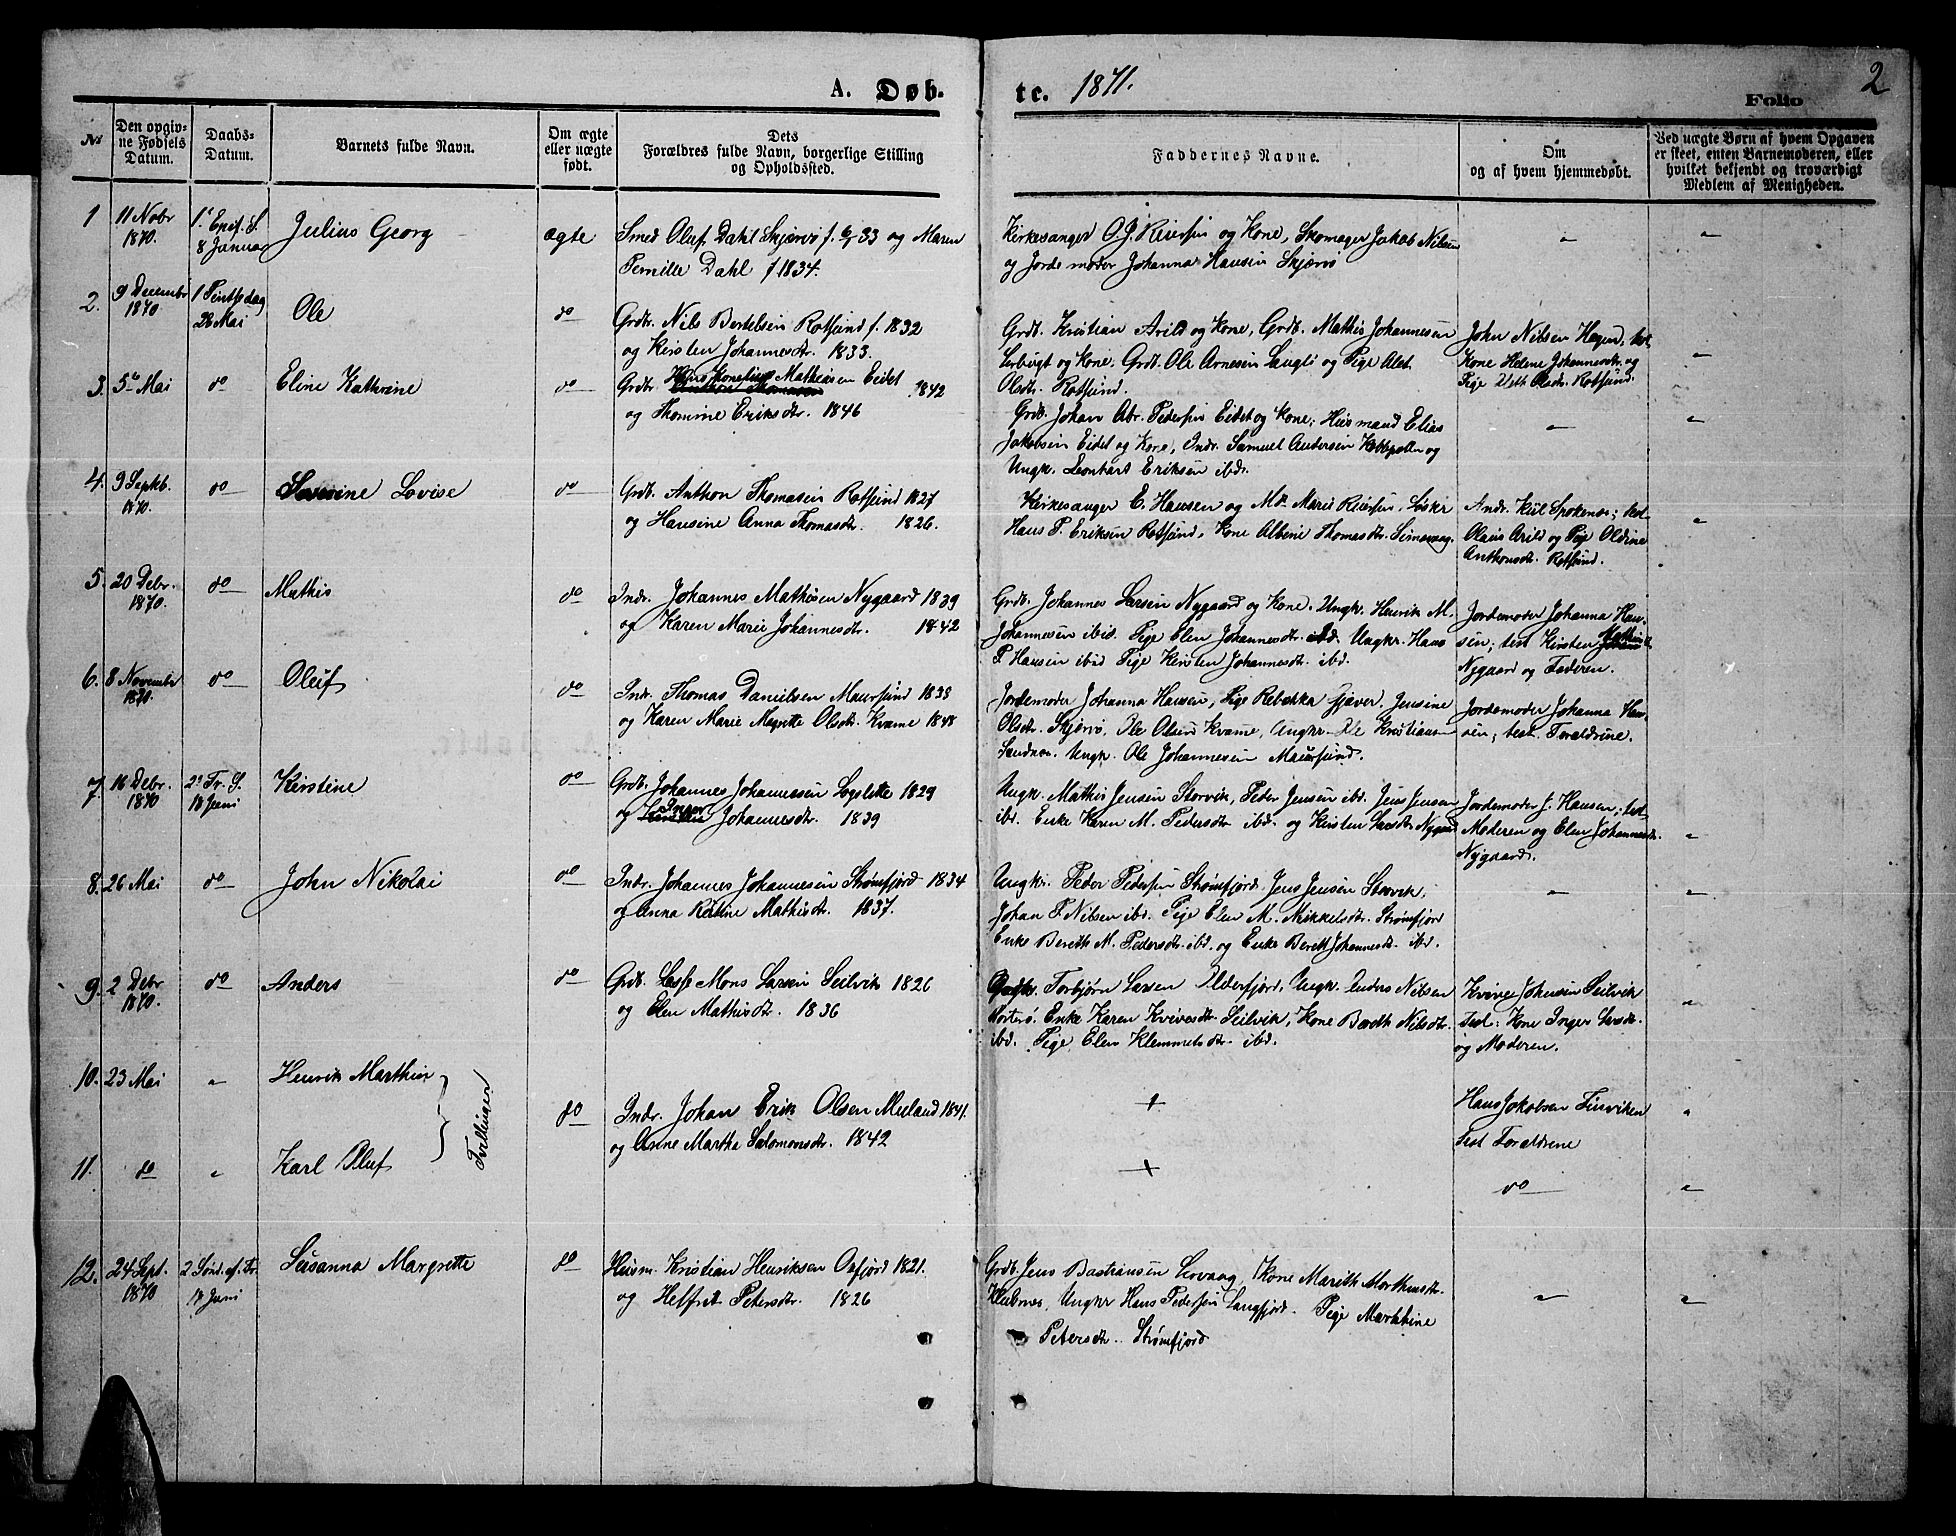 A. Døb-
te. 1871.
2
Folio
No
Den opgiv-
ne Fødsels
Datum.
Daabs-
Datum.
Barnets fulde Navn.
Om ægte
eller uægte
født.
Dets
Forældres fulde Navn, borgerlige Stilling
og Opholdssted.
Faddernes Navne.
Om
og af hvem hjemmedøbt.
Ved uægte Børn af hvem Opgaven
er skeet, enten Barnemoderen, eller
hvilket bekjendt og troværdigt
Medlem af Menigheden.
1
11 Nobr
1870.
1. Epif. S.
8 Januar
Julius Georg
ægte
Smed Oluf Dahl Skjærvø f. 33 og Maren
Pernille Dahl f 1834.
Kirkesanger O.J. Reiersen og Kone, Skomager Jakob Nilsen
og Jordemoder Johanna Hansen Skjærvø
2.
9 Decembr
1870
1 Pintsedag
28 Mai
Ole
do
Grdb. Nils Bertelsen Rotsund f. 1832
og Kirsten Johannesdtr. 1833.
Grdb. Kristian Arild og Kone, Grdb. Mathis Johannesen
Lerbugt og Kone, Grdb. Ole Arnesen Langli og Pige Alet
Olsdtr. Rotsund.
John Nilsen Hagen, test
Kone Helene Johannesdtr. og
Pige Beth Olsdtr. Rotsund.
3.
5te Mai
do
Eline Kathrine
do
Grdb. Hans Kornelius Mathiasen Eidet 1842
og Thomine Eriksdtr. 1846
Grdb. Johan Abr. Pedersen Eidet og Kone, Husmand Elias
Jakobsen Eidet og Kone, Indr. Samuel Andersen Kobbepollen og
Ungk. Leonhart Eriksen ibd.
4.
9 Septb.
1870.
do
Lovise
do
Grdb. Anthon Thomasen Rotsund 1827
og Hansine Anna Thomasdtr. 1826.
Kirkesanger E. Hansen og Md. Marie Reiersen, Løskr
Hans P. Eriksen Rotsund, Kone Albine Thomasdtr.
Andr. Kiil Spokenes; test
Olaus Arild og Pige Oldine
Anthonsdtr. Rotsund.
5.
20 Debr.
1870.
do
Mathis
do
Indr. Johannes Mathisen Nygaard 1839
og Karen Marie Johannesdtr. 1842
Grdb. Johannes Larsen Nygaard og Kone, Ungk. Henrik M.
Johannesen ibid. Pige Elen Johannesdtr. ibd. Ungkr. Hans
P. Hansen ibid Pige Kirsten Johannesdtr. ibd.
Jordemoder Johanna Han-
sen; test Kirsten
Nygaard og Faderen.
6.
8 Novembr
1870.
do
Oluf
do
Indr. Thomas Danielsen Maursund 1838
og Karen Marie Megrette Olsdtr. Kvame 1848
Jordemoder Johanna Hansen, Pige Rebekka Gjæver, Jensine
Olsdtr. Skjærvø, Ole Olsen Kvame, Ungkr. Ole Kristiansen
Sandnæs. Ungk. Ole Johannesen Maursund.
Jordemoder Johanna Han-
sen; test. Foraldrene.
7.
16 Debr.
1870
2. Tr. S.
18 Juni
Kirstine
do
Grdb. Johannes Johannesen Logslette 1829
og Inger Johannesdtr. 1839
Ungk. Mathis Jensen Storvik, Peder Jensen ibd. Jens Jensen
ibd. Enke Karen M. Pedersdtr ibd. og Kirsten Larsdtr Nygaard
Jordemoder J. Hansen; test
Moderen og Elen Johannesdtr.
Nygaard.
8.
26 Mai
do
John Nikolai
do
Indr. Johannes Johannesen Strømfjord 1834
og Anna Katrine Mathisdtr. 1837.
Ungkr. Peder Pedersen Strømfjord, Jens Jensen Storvik,
Johan P. Nilsen ibd. Pige Elen M. Mikkelsdtr. Strømfjord
Enke Bereth M. Pedersdtr. ibd. og Enke Bereth Johannesdtr. ibd.
9.
2 Debr
1870.
do
Anders
do
Grdb. Lasse Mons Larsen Seilvik 1826
og Elen Mathisdtr. 1836
Torbjørn Larsen Olderfjord, Ungk. Anders Nilsen
Enke Karen Kvivesdtr. Seilvik, Kone Bereth Nilsdtr.
ibd. Pige Elen Klemmetsdtr. ibd.
Kvive Johnsen Seilvik
test: Kone Inger Larsdtr.
og Moderen.
10.
23 Mai
Henrik Marthin
Tvillinger
do
Indr. Johan Erik Olsen Meiland 1841.
og Anne Martha Salomonsdtr. 1842
+
Hans Jakobsen Finviken
Test Foraldrene
11.
do
Karl Oluf
+
do
12.
24 Sept.
1870
2 Sønd. ef. Tr.
18 Juni
Susanna Margrette
do
Husm. Kristian Henriksen Oxfjord 1821.
og Helfrid Petersdtr. 1826
Grdb. Jens Bastiansen Lervaag, Kone Marith Morthensdtr.
Klubnes, Ungkr Hans Pedersen Langfjord. Pige Marthine
Petersdtr. Strømfjord